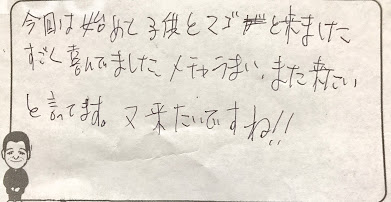 今回は始めて子供とマゴと来ました
すごく喜んでました メチャうまい、また来たい
と言ってます。又来たいですね!!